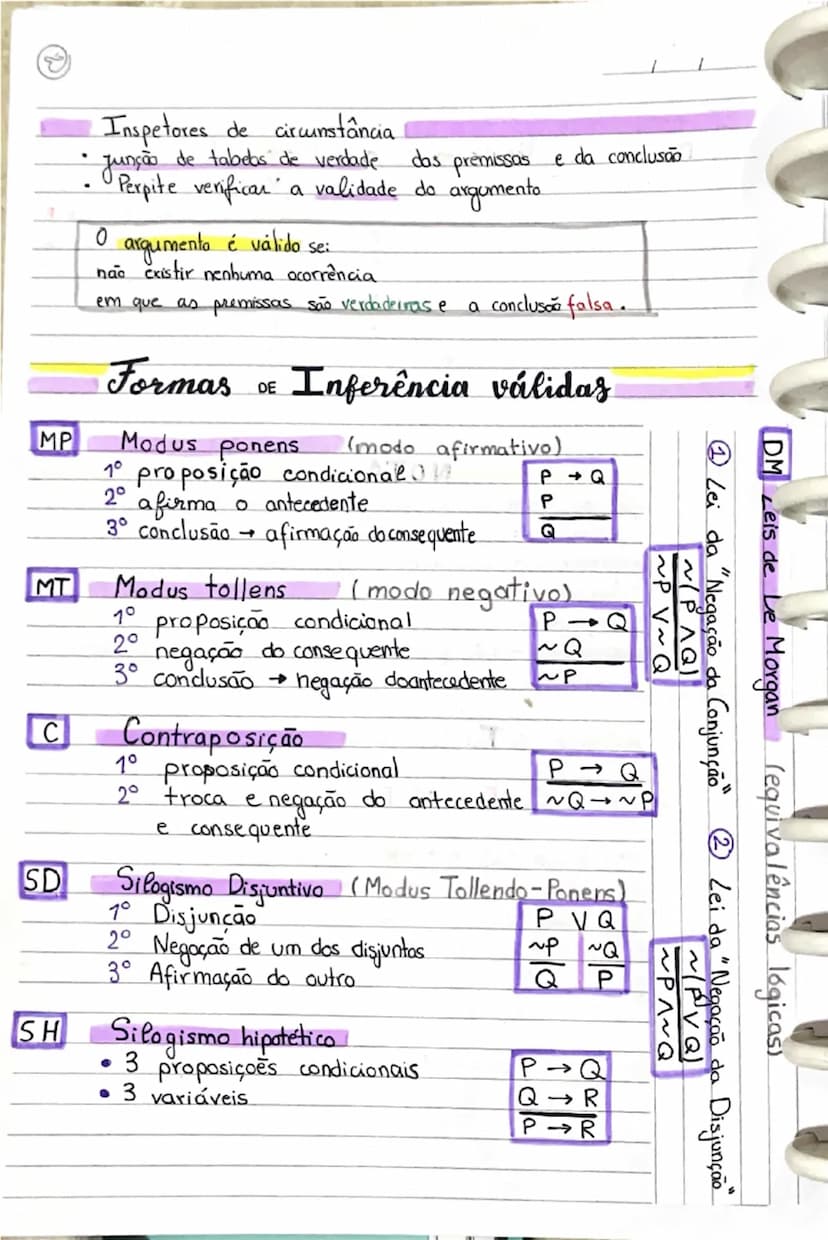 Inspetores de circunstância
• junção de tabebs de verdade das premissas e da conclusão
• Perpite verificar a validade do argumento
O argumento é válido se:
não existir nenhuma ocorrência
em que as premissas são verdadeiras e a conclusão falsa.
Formas DE Inferência válidas
MP Modus ponens (modo afirmativo)
1º proposição condicional
2º afirma o antecedente
3º conclusão → afirmação do consequente
P → Q
P
Q
MT Modus tollens (modo negativo)
1º proposição condicional
2º negação do consequente
3º conclusão → negação do antecedente
P → Q
~Q
~P
C Contraposição
1º proposição condicional
2º troca e negação do antecedente
e consequente
P → Q
~Q → ~P
SD Silogismo Disjuntivo (Modus Tollendo-Ponens)
1º Disjunção
2º Negação de um dos disjuntos
3º Afirmação do outro
P V Q
~P ~Q
Q P
SH Silogismo hipotético
• 3 proposições condicionais
• 3 variáveis
P → Q
Q → R
P → R
DM Leis de De Morgan (equivalências lógicas)
① Lei da "Negação da Conjunção" ② Lei da "Negação da Disjunção"
~(P ∧ Q)
~P V ~Q
~(P V Q)
~P ∧ ~Q